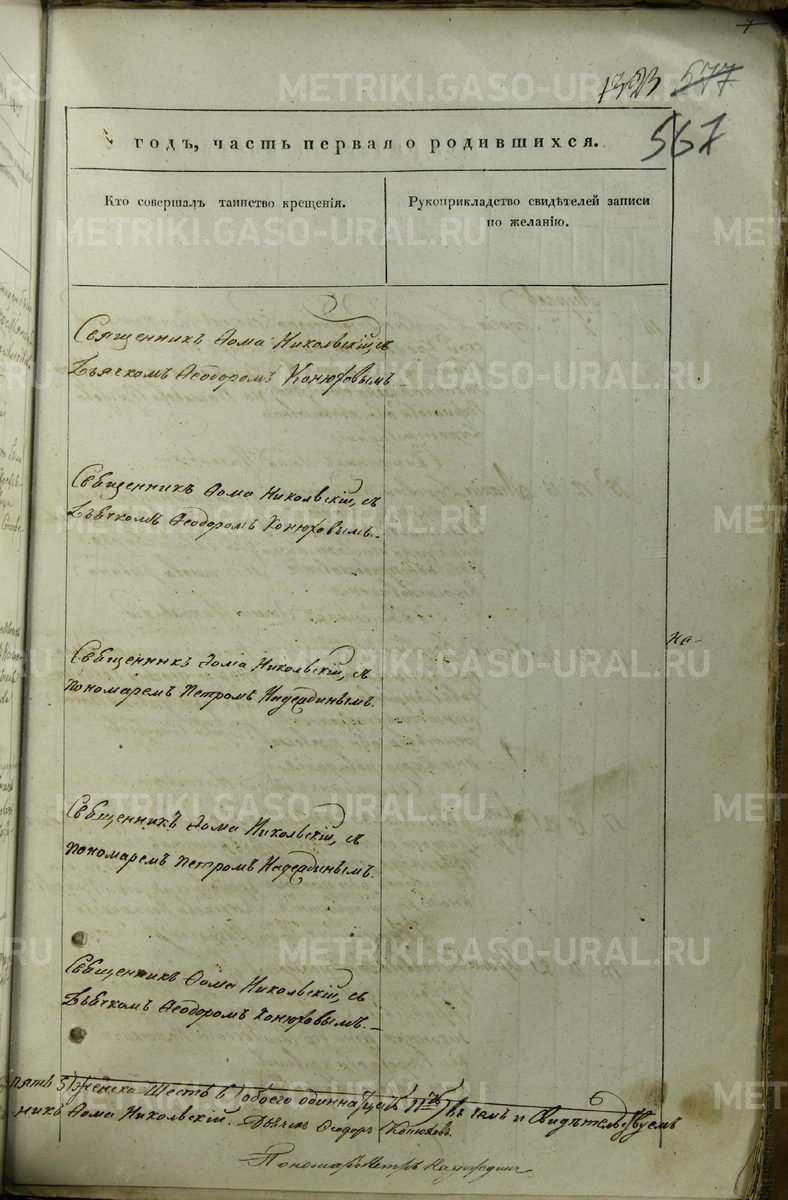 1323 577
567
годъ, часть первая о родившихся.
Кто совершалъ таинство крещенія.
Рукоприкладство свидѣтелей записи
по желанію.
Священникъ Ѳома Никольскій съ
Дьячкомъ Ѳеодоромъ Конюховымъ.
Священникъ Ѳома Никольскій, съ
Дьячкомъ Ѳеодоромъ Конюховымъ.
Священникъ Ѳома Никольскій, съ
пономаремъ Петромъ
на-
Священникъ Ѳома Никольскій, съ
пономаремъ Петромъ
Священникъ Ѳома Никольскій, съ
Дьячкомъ Ѳеодоромъ Конюховымъ.
пять 5) женска шесть 6) обоего одиннадцать 11ть) въ чемъ и свидѣтельствуемъ
никъ Ѳома Никольскій. Дьячекъ Ѳеодоръ Конюховъ.
Пономарь Петръ
METRIKI.GASO-URAL.RU